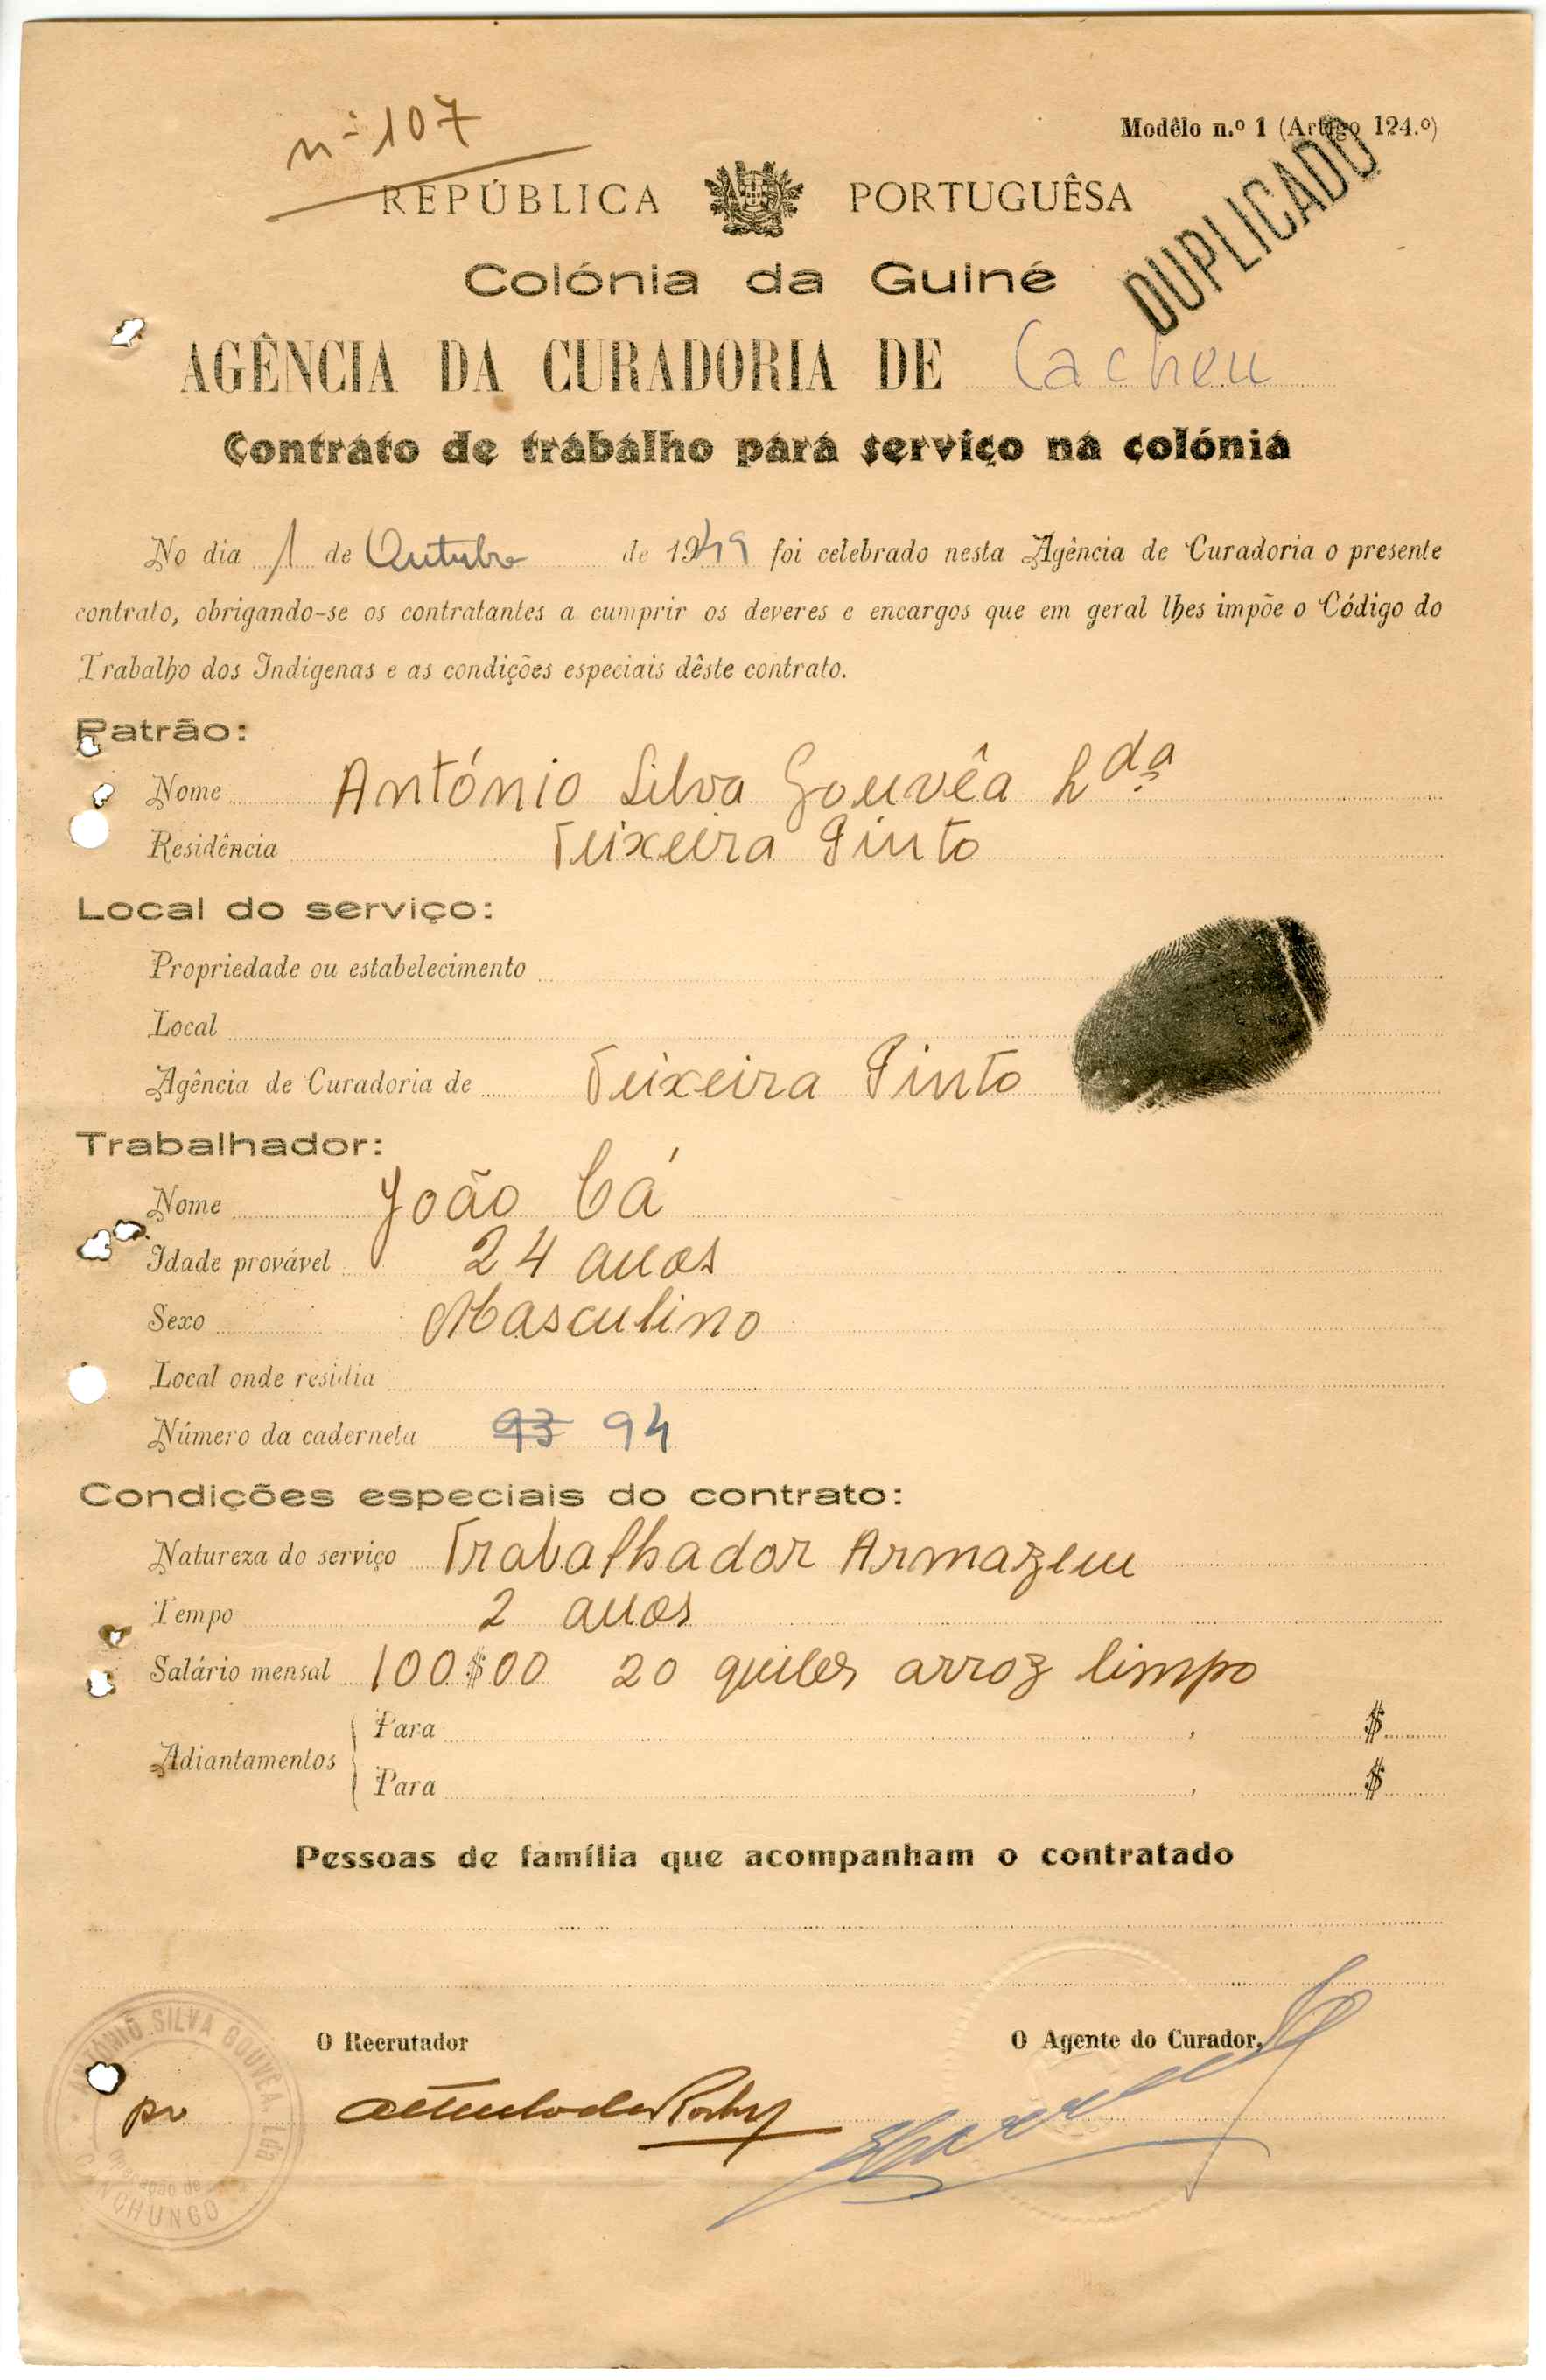 nº 107
Modêlo n.º 1 (Artigo 124.º)
REPÚBLICA PORTUGUÊSA
DUPLICADO
Colónia da Guiné
AGÊNCIA DA CURADORIA DE Cacheu
Contrato de trabalho para serviço na colónia
No dia 1 de Outubro de 1949 foi celebrado nesta Agência de Curadoria o presente
contrato, obrigando-se os contratantes a cumprir os deveres e encargos que em geral lhes impõe o Código do
Trabalho dos Indigenas e as condições especiais dêste contrato.
Patrão:
Nome António Silva Gouvêa Lda
Residência Teixeira Pinto
Local do serviço:
Propriedade ou estabelecimento
Local
Agência de Curadoria de Teixeira Pinto
Trabalhador:
Nome João Cá
Idade provável 24 anos
Sexo Masculino
Local onde residia
Número da caderneta 93 94
Condições especiais do contrato:
Natureza do serviço Trabalhador Armazem
Tempo 2 anos
Salário mensal 100$00 20 quilos arroz limpo
Adiantamentos
Para , $
Para , $
Pessoas de família que acompanham o contratado
O Recrutador
O Agente do Curador,
ANTÓNIO SILVA GOUVÊA, Lda
CANCHUNGO